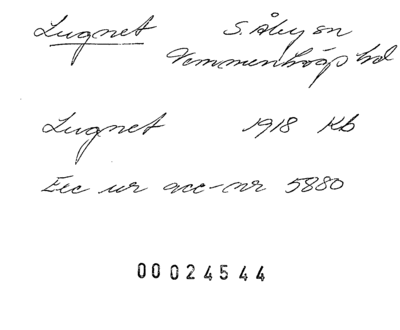 Lugnet S. Åby sn
Vemmenhögs hd
Lugnet 1918 Kb
Exc ur acc-nr 5880
00024544